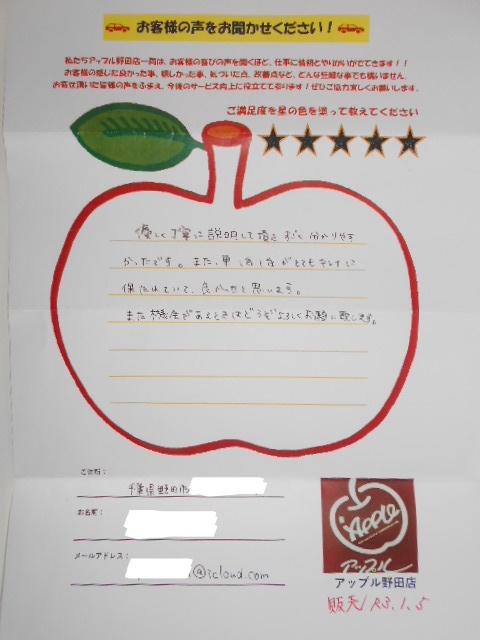 お客様の声をお聞かせください！
私たちアップル野田店一同は、お客様の喜びの声を聞くほど、仕事に情熱とやりがいがでてきます！！
お客様の感じた良かった事、嬉しかった事、気づいた点、改善点など、どんな些細な事でも構いません。
お寄せ頂いた皆様の声をふまえ、今後のサービス向上に役立てております！ぜひご協力宜しくお願いします。
ご満足度を星の色を塗って教えてください
優しく丁寧に説明して頂き すごく分かりやす
かったです。また、車 がとてもキレイに
保たれていて、良かったと思います。
また機会があるときはどうぞよろしくお願い致します。
ご住所：
千葉県野田市
お名前：
メールアドレス：
@icloud.com
Apple
アップル
アップル野田店
販売/R3.1.5